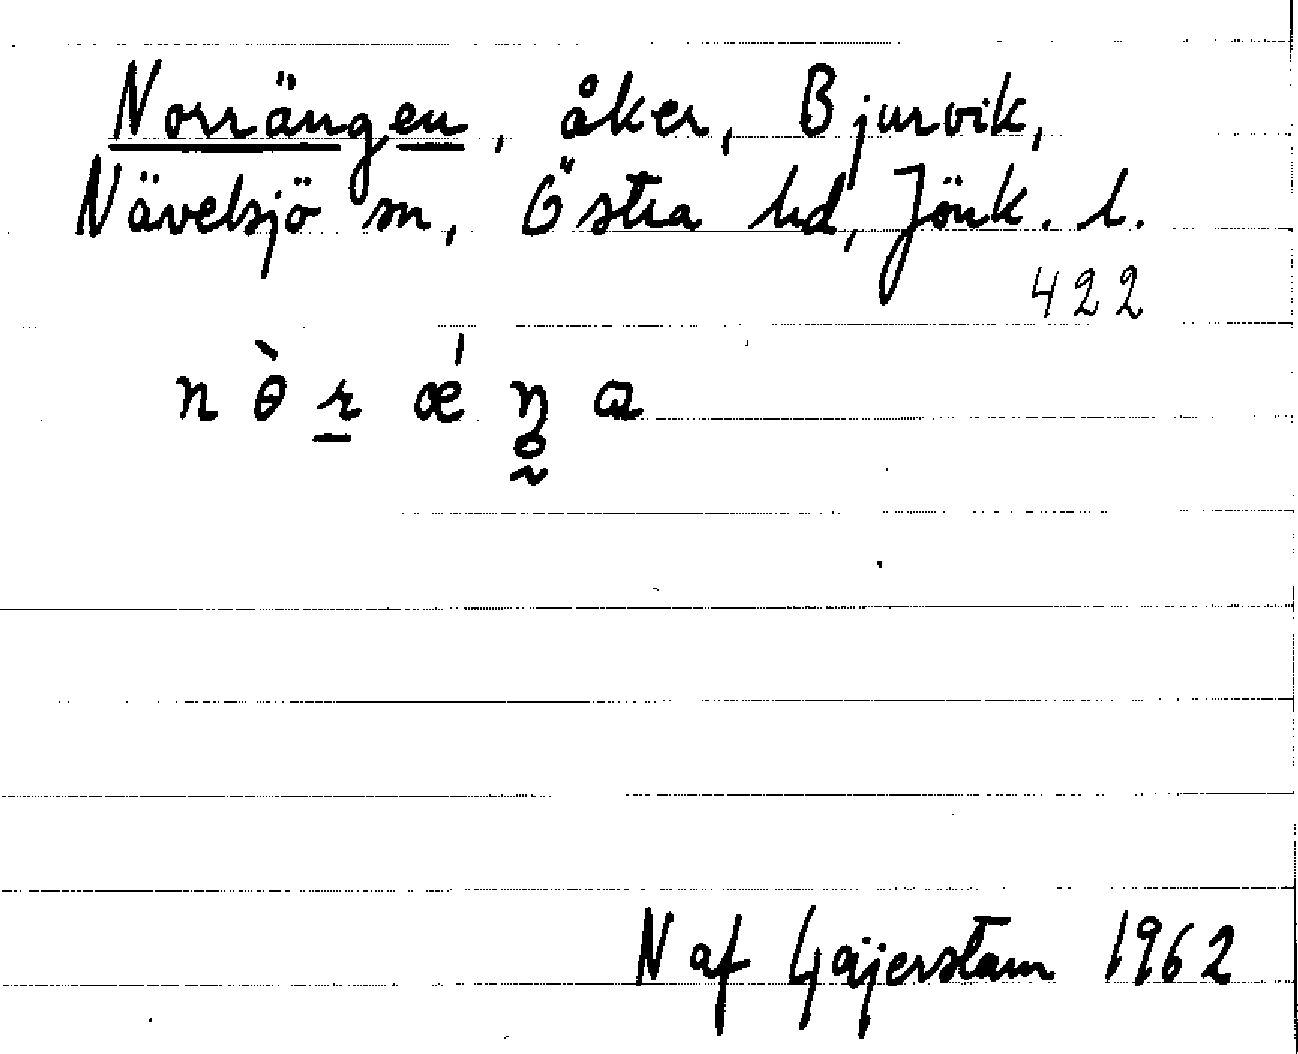 Norrängen, åker, Bjurvik,
Nävelsjö sn, Östra hd, Jönk. l.
422
n ɵ̀ r ǽ ŋ̥ a
N af Gäijerstam 1962